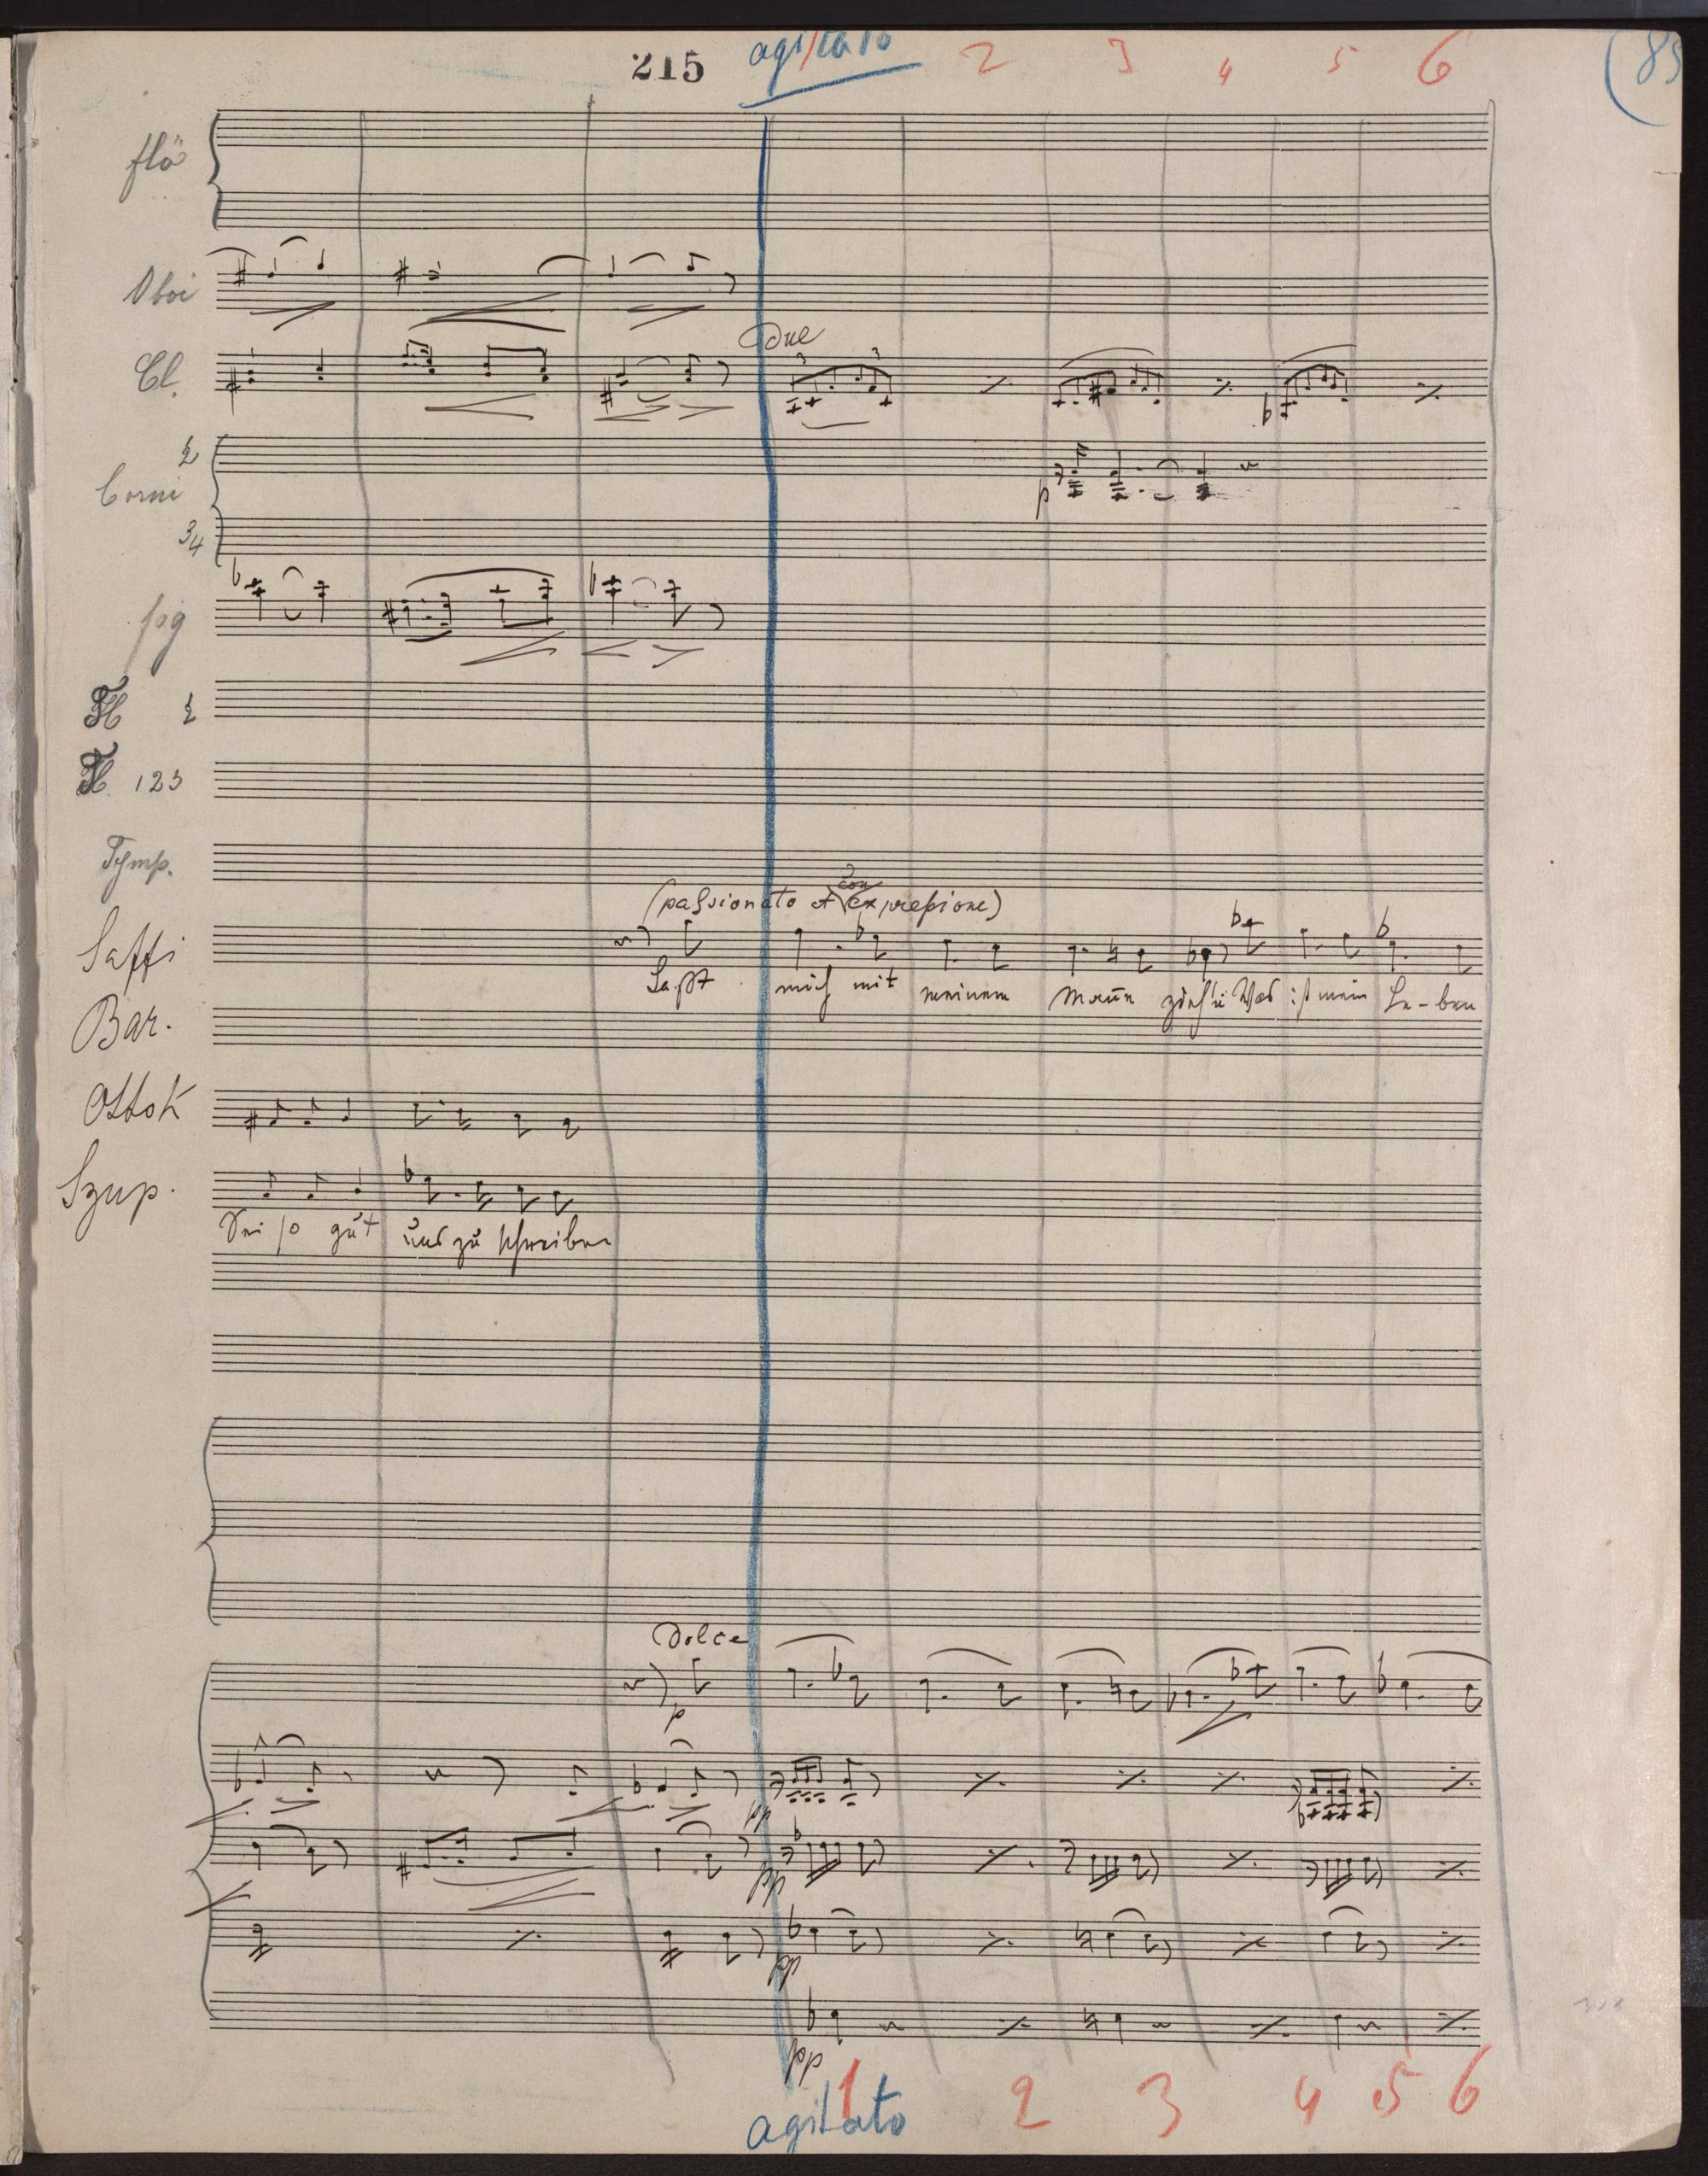 215 agitato 2 3 4 5 6 (85
flö
Oboi
Cl.
Due
3 3
Corni
3 4
p
fag
123
Tymp.
(passionato et con expressione)
Saffi
Laßt mich mit meinem Mann zieh'n Was ist mein Le-ben
Bar.
Ottok
Szup.
Sei so gut uns zu schreiben
Dolce
p
pp
pp
pp
pp
1 2 3 4 5 6
agitato